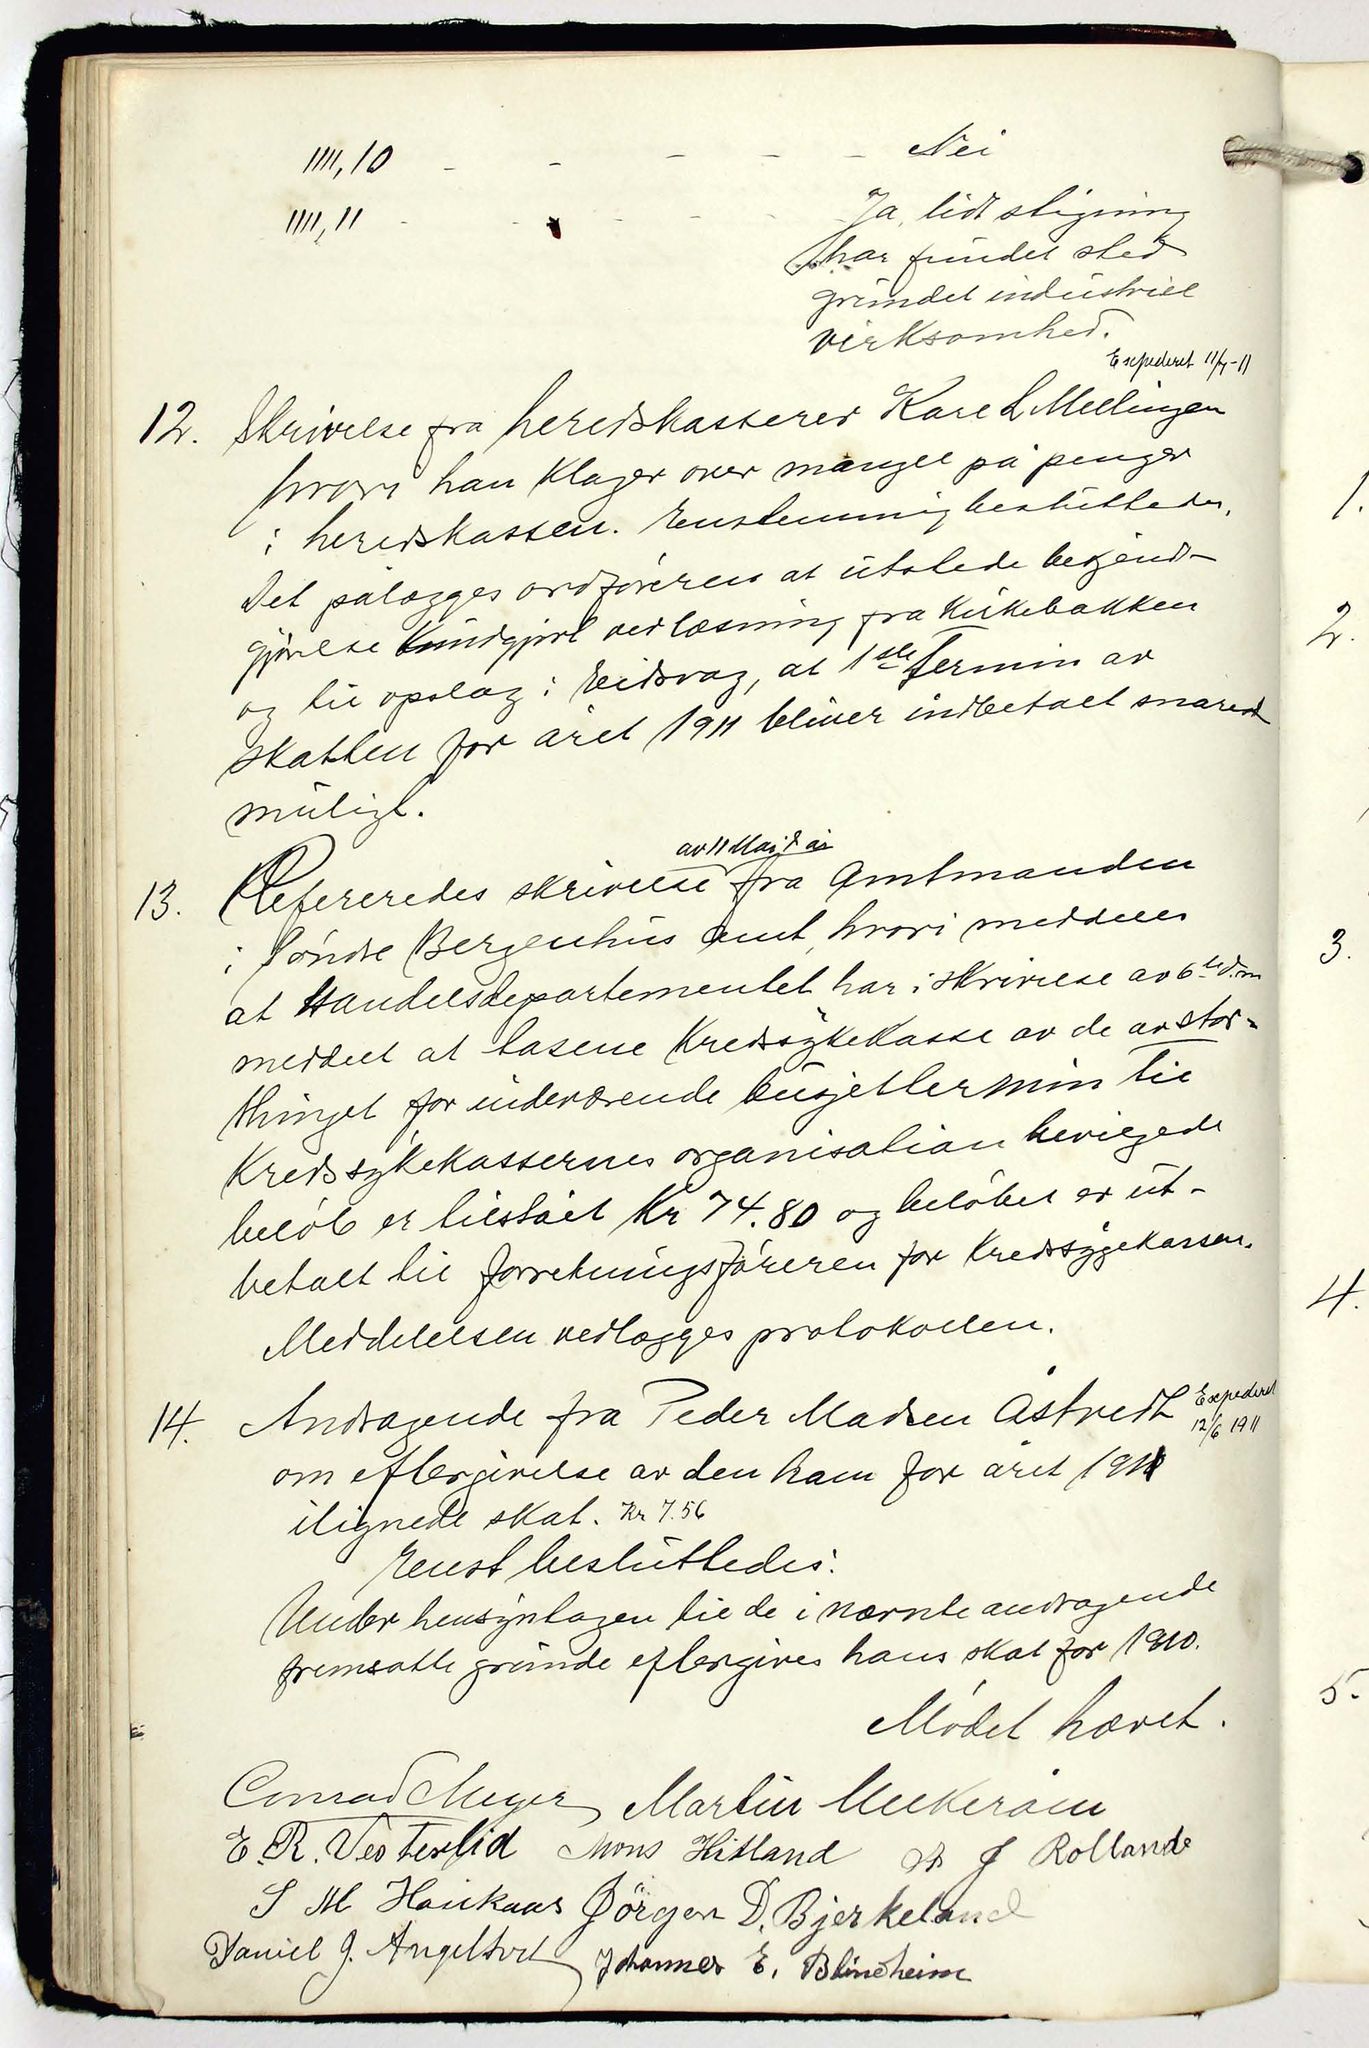 IIII, 10 - - - - - Nei
IIII, 11 - - - - Ja, lidt stigning
har fundet sted
grundet industriel
virksomhed.
Expederet 11/7-11
12. Skrivelse fra heredskasserer Karl L Mellingen
hvori han klager over mangel på penger
i heredskassen. Enstemmig besluttedes.
Det pålægges ordføreren at utstede bekjendt-
gjørelse kundgjort ved læsning fra Kirkebakken
og til opslag i Eidsvag, at 1ste Termin av
skatten for året 1911 bliver indbetalt snarest
muligt.
av 11 Mai d. år
13. Refereredes skrivelse fra Amtmanden
i Søndre Bergenhus amt, hvori meddeles
at Handelsdepartementet har i skrivelse av 6te d.m
meddelt at Åsene Kredssykekasse av de av stor-
thinget for indeværende budjettermin til
Kredssykekassernes organisation bevilgede
beløb er tilstået Kr 74.80 og beløbet er ut-
betalt til forretningsføreren for Kredssygekassen.
Meddelelsen vedlægges protokollen.
14. Andragende fra Peder Madsen Åstvedt
Expederet
12/6 1911
om eftergivelse av den ham for året 1910
ilignede skat. Kr 7.56
Enst besluttedes:
Under hensyntagen til de i nævnte andragende
fremsatte grunde eftergives hans skat for 1910.
Mødet hævet.
Conrad Meyer Martin Mukeråen
E. R. Vesterlid Mons Hitland J Rolland
S M Haukaas Jørgen D. Bjerkeland
Daniel J. Angeltvet Johannes E. Blindheim
1.
2.
3.
4.
5.